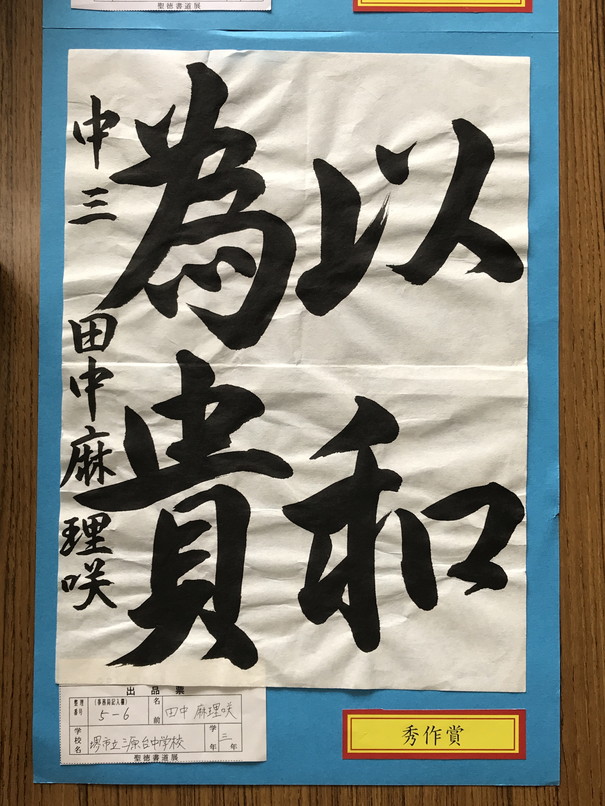 聖徳書道展
以和
為貴
中三 田中麻理咲
出品票
整理番号 (事務局記入欄) 5-6 名前 田中 麻理咲
学校名 堺市立三原台中学校 学年 三年
聖徳書道展
秀作賞